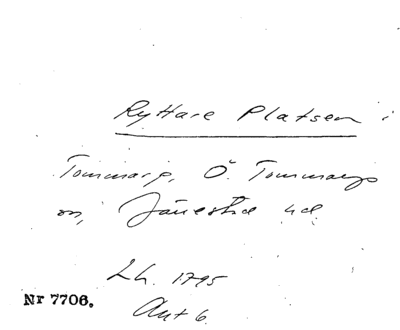 Ryttare Platsen i
Tommarp, Ö. Tommarps
sn, Järrestad hd.
Lh. 1795
Akt 6
Nr 7706.